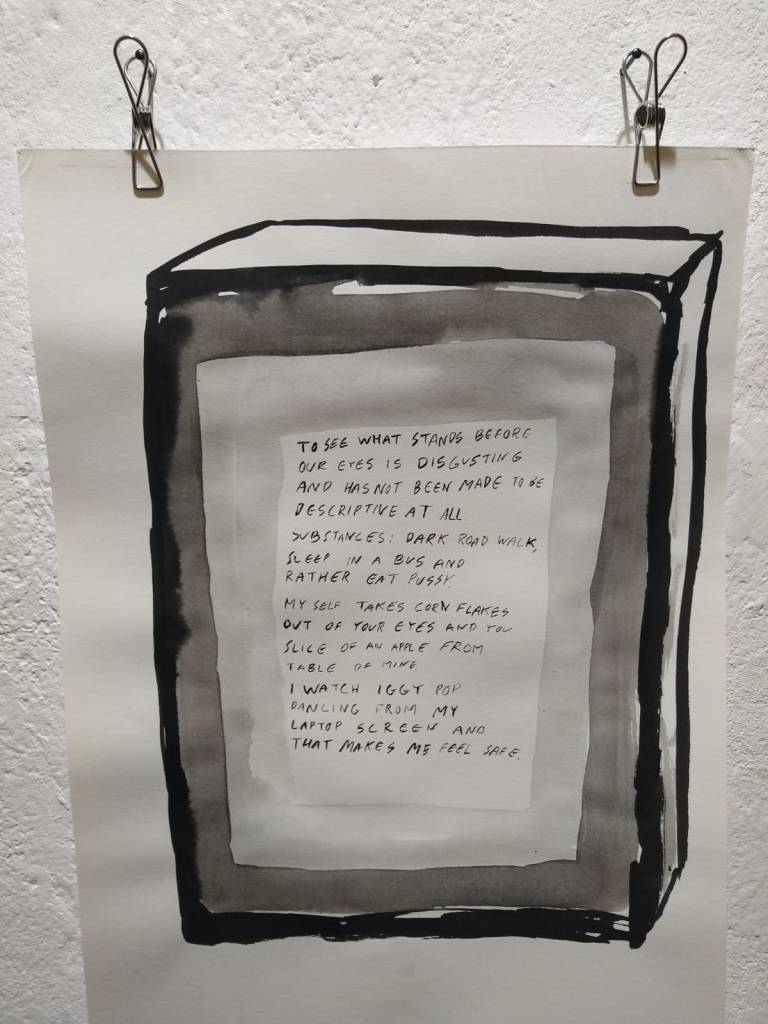 TO SEE WHAT STANDS BEFORE
OUR EYES IS DISGUSTING
AND HAS NOT BEEN MADE TO BE
DESCRIPTIVE AT ALL
SUBSTANCES: DARK ROAD WALK,
SLEEP IN A BUS AND
RATHER EAT PUSSY.
MY SELF TAKES CORN FLAKES
OUT OF YOUR EYES AND YOU
SLICE OF AN APPLE FROM
TABLE OF MINE
I WATCH IGGY POP
DANCING FROM MY
LAPTOP SCREEN AND
THAT MAKES ME FEEL SAFE.